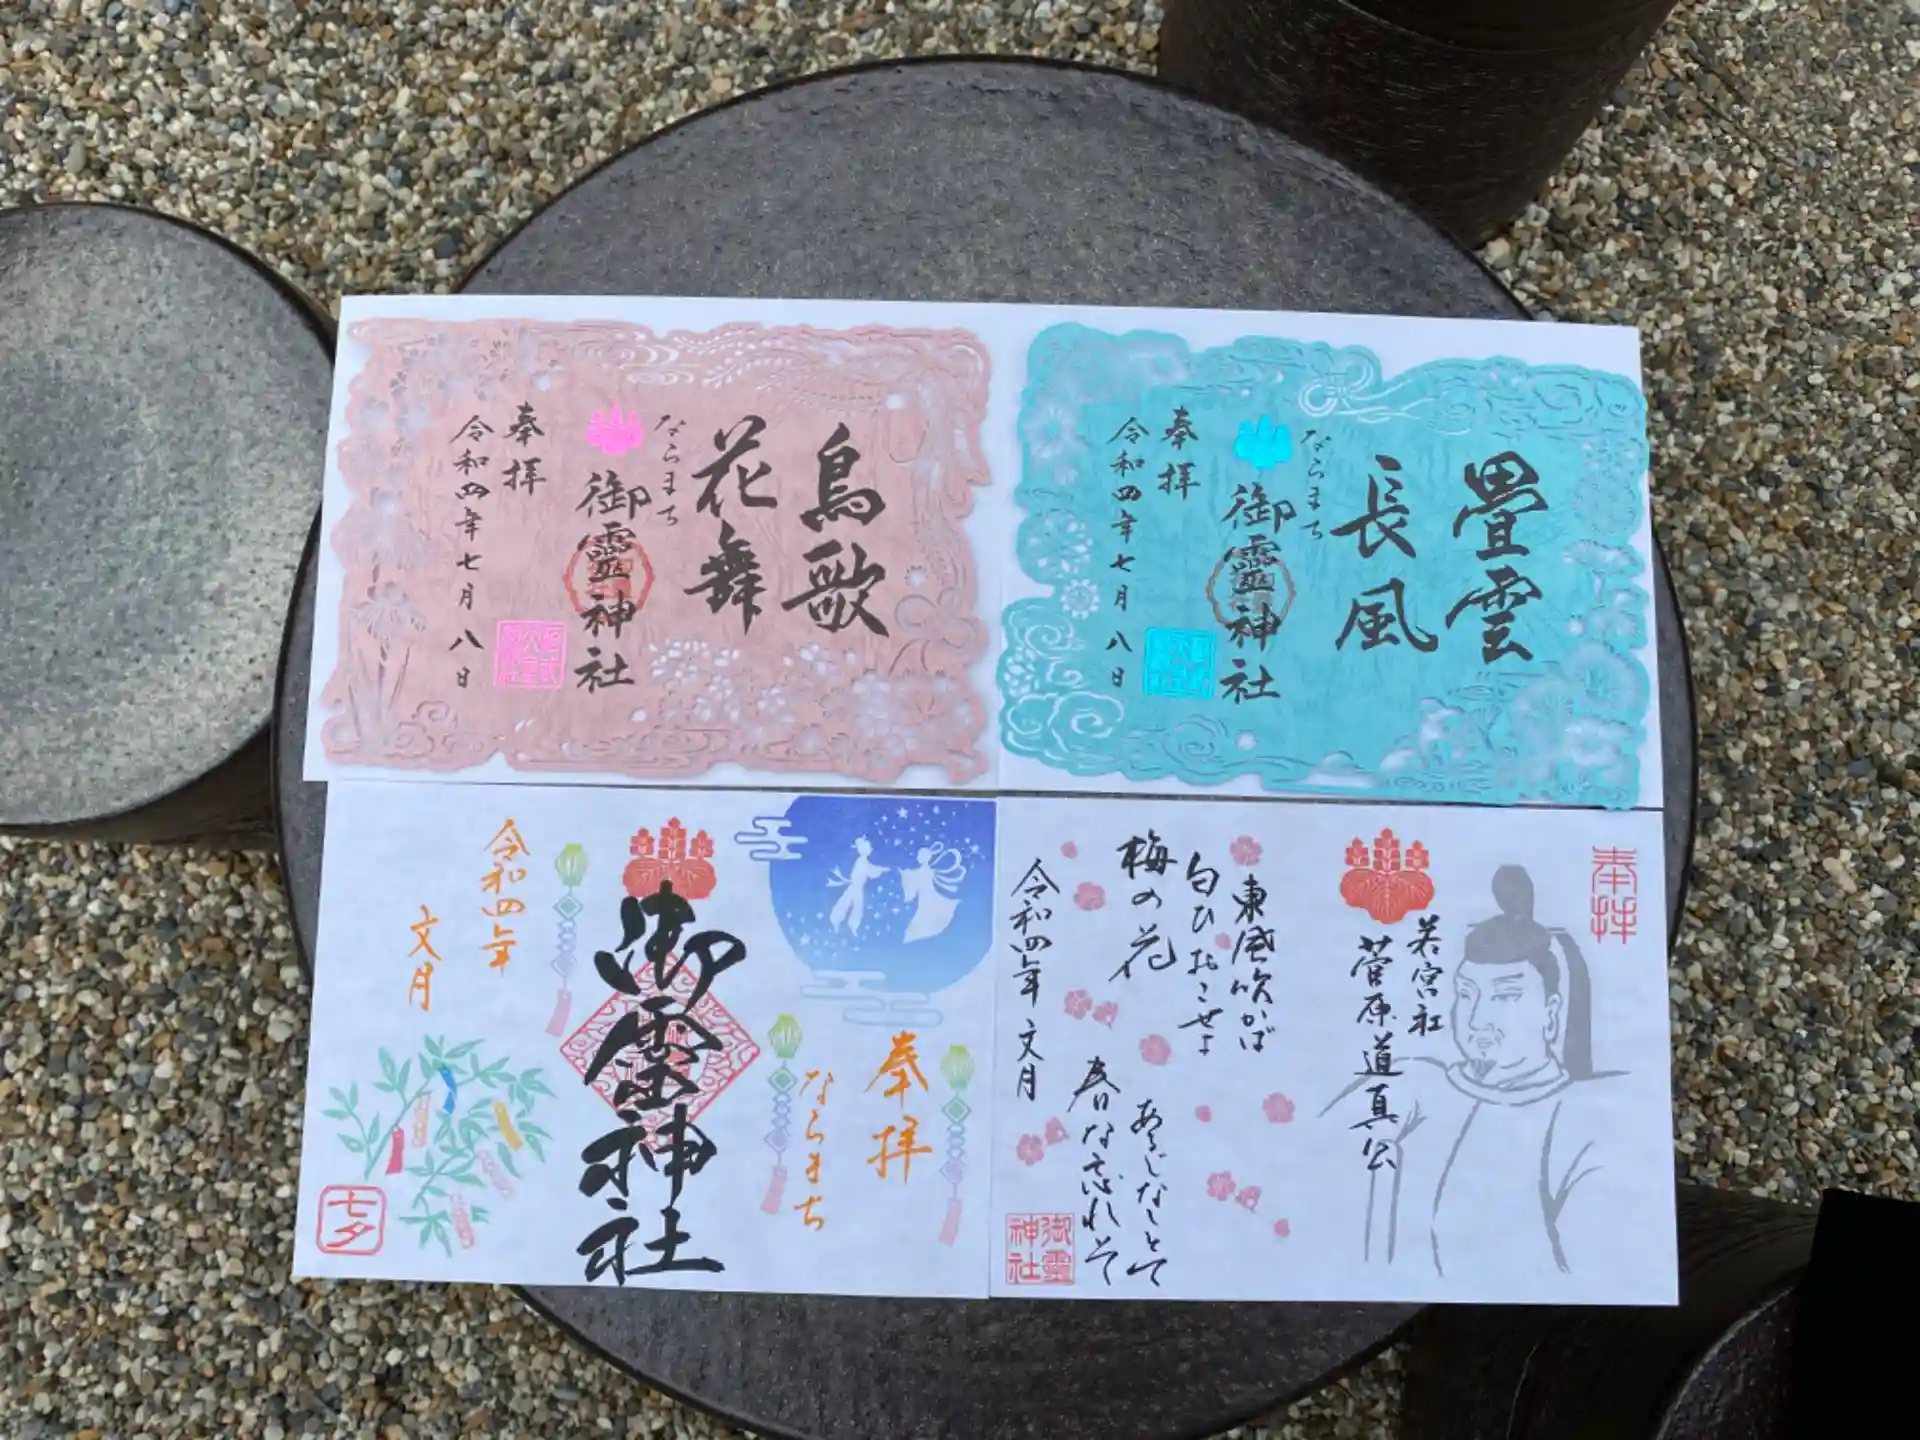 鳥歌
花舞
ならまち
御霊神社
奉拝
令和四年七月八日
畳雲
長風
ならまち
御霊神社
奉拝
令和四年七月八日
奉拝
ならまち
御霊神社
令和四年
文月
七夕
奉拝
若宮社
菅原道真公
東風吹かば
匂ひおこせよ
梅の花
あるじなしとて
春な忘れそ
令和四年文月
御霊
神社